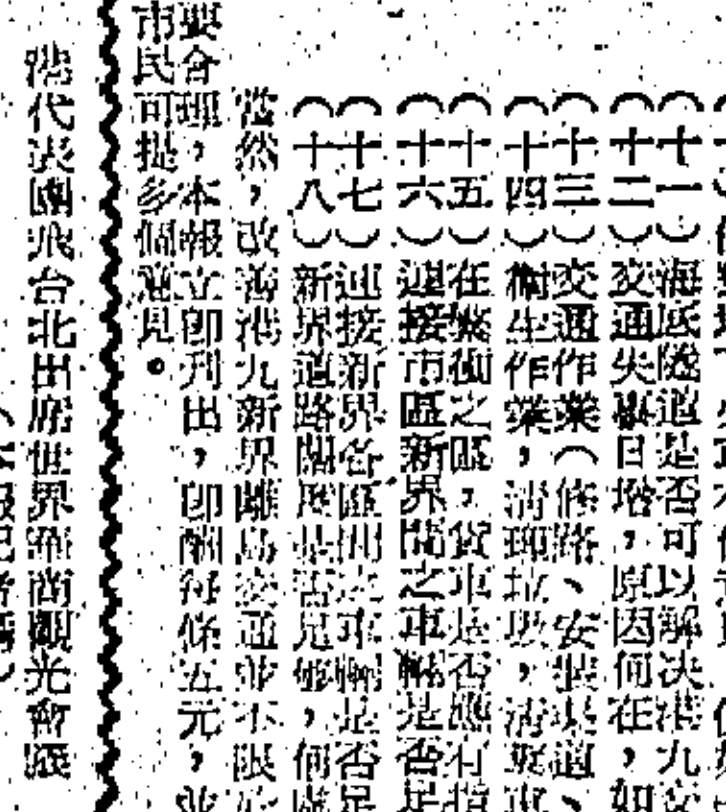 (十一)海底隧道是否可以解決港九交
(十二)交通失事日增,原因何在,如
(十三)交通作業(修路、安裝渠道、
(十四)衞生作業,清理垃圾,清
(十五)在繁衝之區,貨車是否應有指
(十六)連接市區新界間之車輛是否足
(十七)連接新界各區間之車輛是否足
(十八)新界道路開展是否足够,何處
當然,改善港九新界離島交通並不限
要合理,本報立卽刊出,卽酬每條五元,並
市民可提多個意見。
港代表團飛台北出席世界華商觀光會議